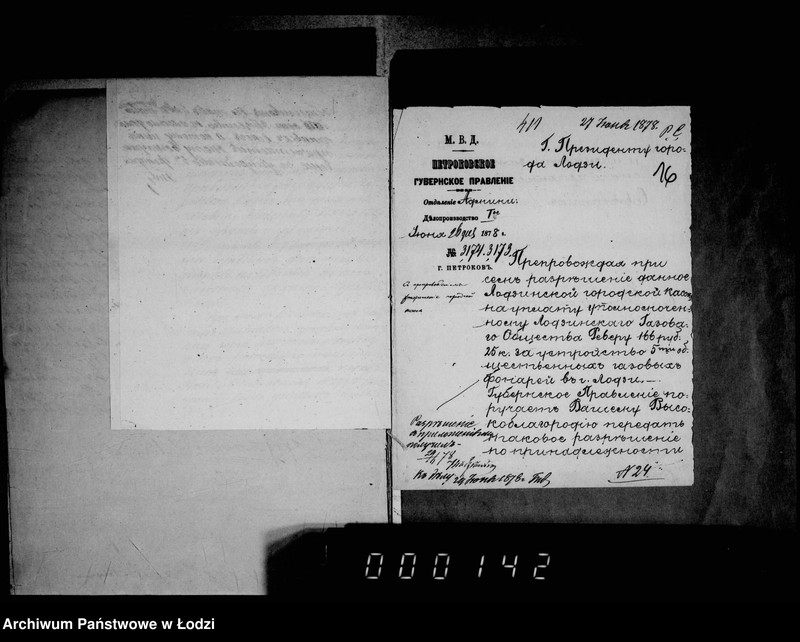 411
27 Іюня 1878.
Г. Президенту горо-
да Лодзи.
16
М. В. Д.
ПЕТРОКОВСКОЕ
ГУБЕРНСКОЕ ПРАВЛЕНІЕ
Отдѣленіе Админи.
Дѣлопроизводство
Іюня 26 дня 1878 г.
№ 3174.3173.
Г. ПЕТРОКОВЪ.
Препровождая при
семъ разрѣшеніе данное
Лодзинской городской кассѣ
на уплату уполномочен-
ному Лодзинскаго Газова-
го Общества Реверу 166 руб.
25 к. за устройство 5ти об-
щественныхъ газовыхъ
фонарей въ г. Лодзи. —
Губернское Правленіе по-
ручаетъ Вашему Высо-
коблагородію передать
таковое разрѣшеніе
по принадлежности
Разрѣшеніе
получилъ
Къ дѣлу 29 Іюня 1878 г.
N 24.
000142
Archiwum Państwowe w Łodzi